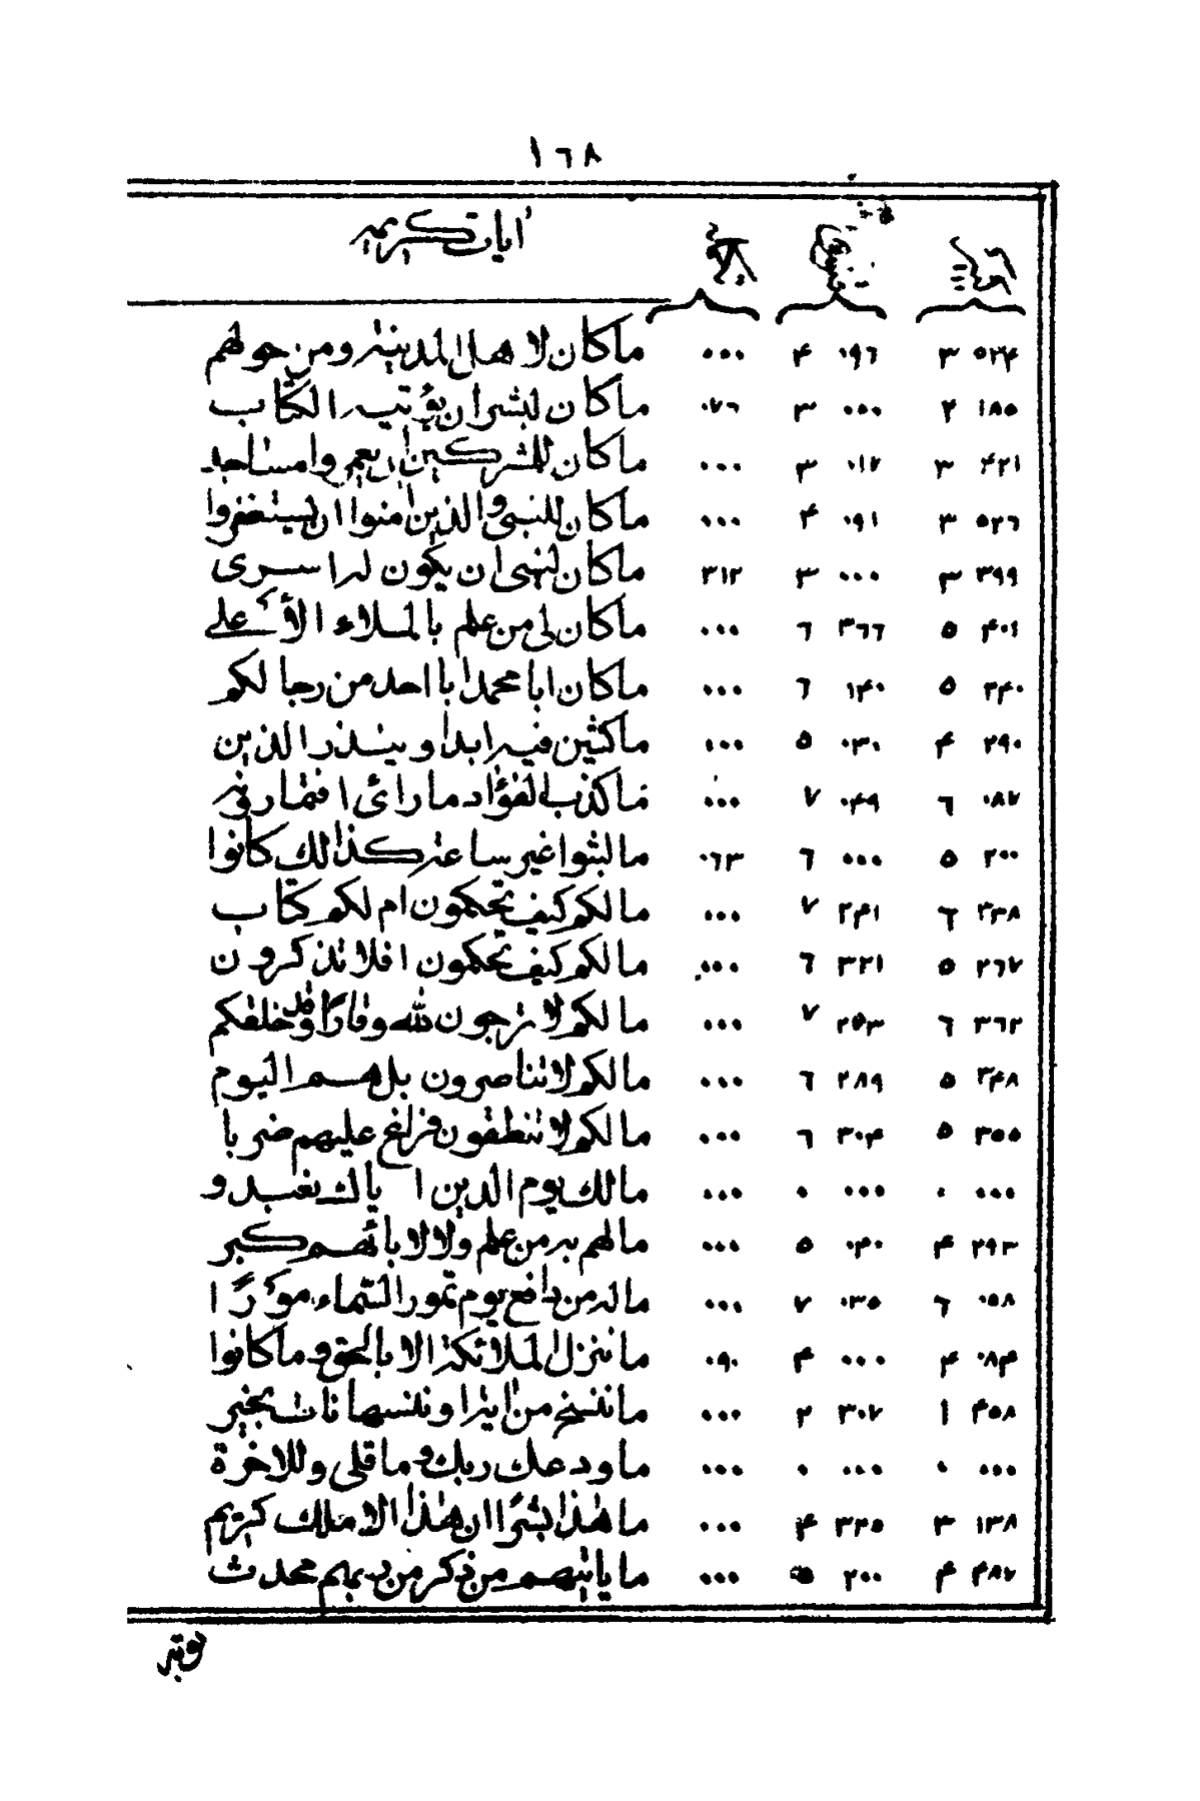 ١٦٨
ايات كريمه
٥٢٤ ٣ ٠٩٦ ٤ ٠٠٠ ماكان لاهل المدينة ومن حولهم
١٨٥ ٢ ٠٠٠ ٣ ٠٧٦ ماكان لبشر ان يؤتيه الكتاب
٤٢١ ٣ ٠١٧ ٣ ٠٠٠ ماكان للمشركين ان يعمروا مساجد
٥٢٦ ٣ ٠٩١ ٤ ٠٠٠ ماكان للنبي والذين امنوا ان يستغفروا
٣٩٩ ٣ ٠٠٠ ٣ ٣١٢ ماكان لنبي ان يكون له اسرى
٤٠١ ٥ ٣٦٦ ٦ ٠٠٠ ماكان لي من علم بالملاء الأعلى
٢٤٠ ٥ ١٤٠ ٦ ٠٠٠ ماكان ابا محمد ابا احد من رجالكم
٢٩٠ ٤ ٠٣٠ ٥ ٠٠٠ ماكثين فيه ابدا وينذر الذين
٠٨٧ ٦ ٠٤٩ ٧ ٠٠٠ ماكذب الفؤاد ما رائ افتمارونه
٢٠٠ ٥ ٠٠٠ ٦ ٠٦٣ مالبثوا غير ساعة كذالك كانوا
٢٣٨ ٦ ٢٤١ ٧ ٠٠٠ مالكم كيف تحكمون ام لكم كتاب
٢٦٧ ٥ ٣٢١ ٦ ٠٠٠ مالكم كيف تحكمون افلا تذكرون
٣٦٢ ٦ ٢٥٣ ٧ ٠٠٠ مالكم لا ترجون لله وقارًا وقد خلقكم
٢٤٨ ٥ ٢٨٩ ٦ ٠٠٠ مالكم لا تناصرون بل هم اليوم
٣٥٥ ٥ ٣٠٤ ٦ ٠٠٠ مالكم لا تنطقون فراغ عليهم ضربا
٠٠٠ ٠ ٠٠٠ ٠ ٠٠٠ مالك يوم الدين اياك نعبد و
٢٩٣ ٤ ٠٤٠ ٥ ٠٠٠ مالهم به من علم ولا لابائهم كبر
٠٥٨ ٦ ٠٣٥ ٧ ٠٠٠ ماله من دافع يوم تمور السماء مورًا
٠٨٤ ٤ ٠٠٠ ٤ ٠٩٠ ماننزل الملائكة الا بالحق وماكانوا
٤٥٨ ١ ٣٠٧ ٢ ٠٠٠ ماننسخ من اية او ننسها نات بخير
٠٠٠ ٠ ٠٠٠ ٠ ٠٠٠ ماودعك ربك وماقلى وللاخرة
١٣٨ ٣ ٣٣٥ ٤ ٠٠٠ ماهذا بشرًا ان هذا الا ملك كريم
٤٨٧ ٤ ٢٠٠ ٥ ٠٠٠ ماياتيهم من ذكر من ربهم محدث